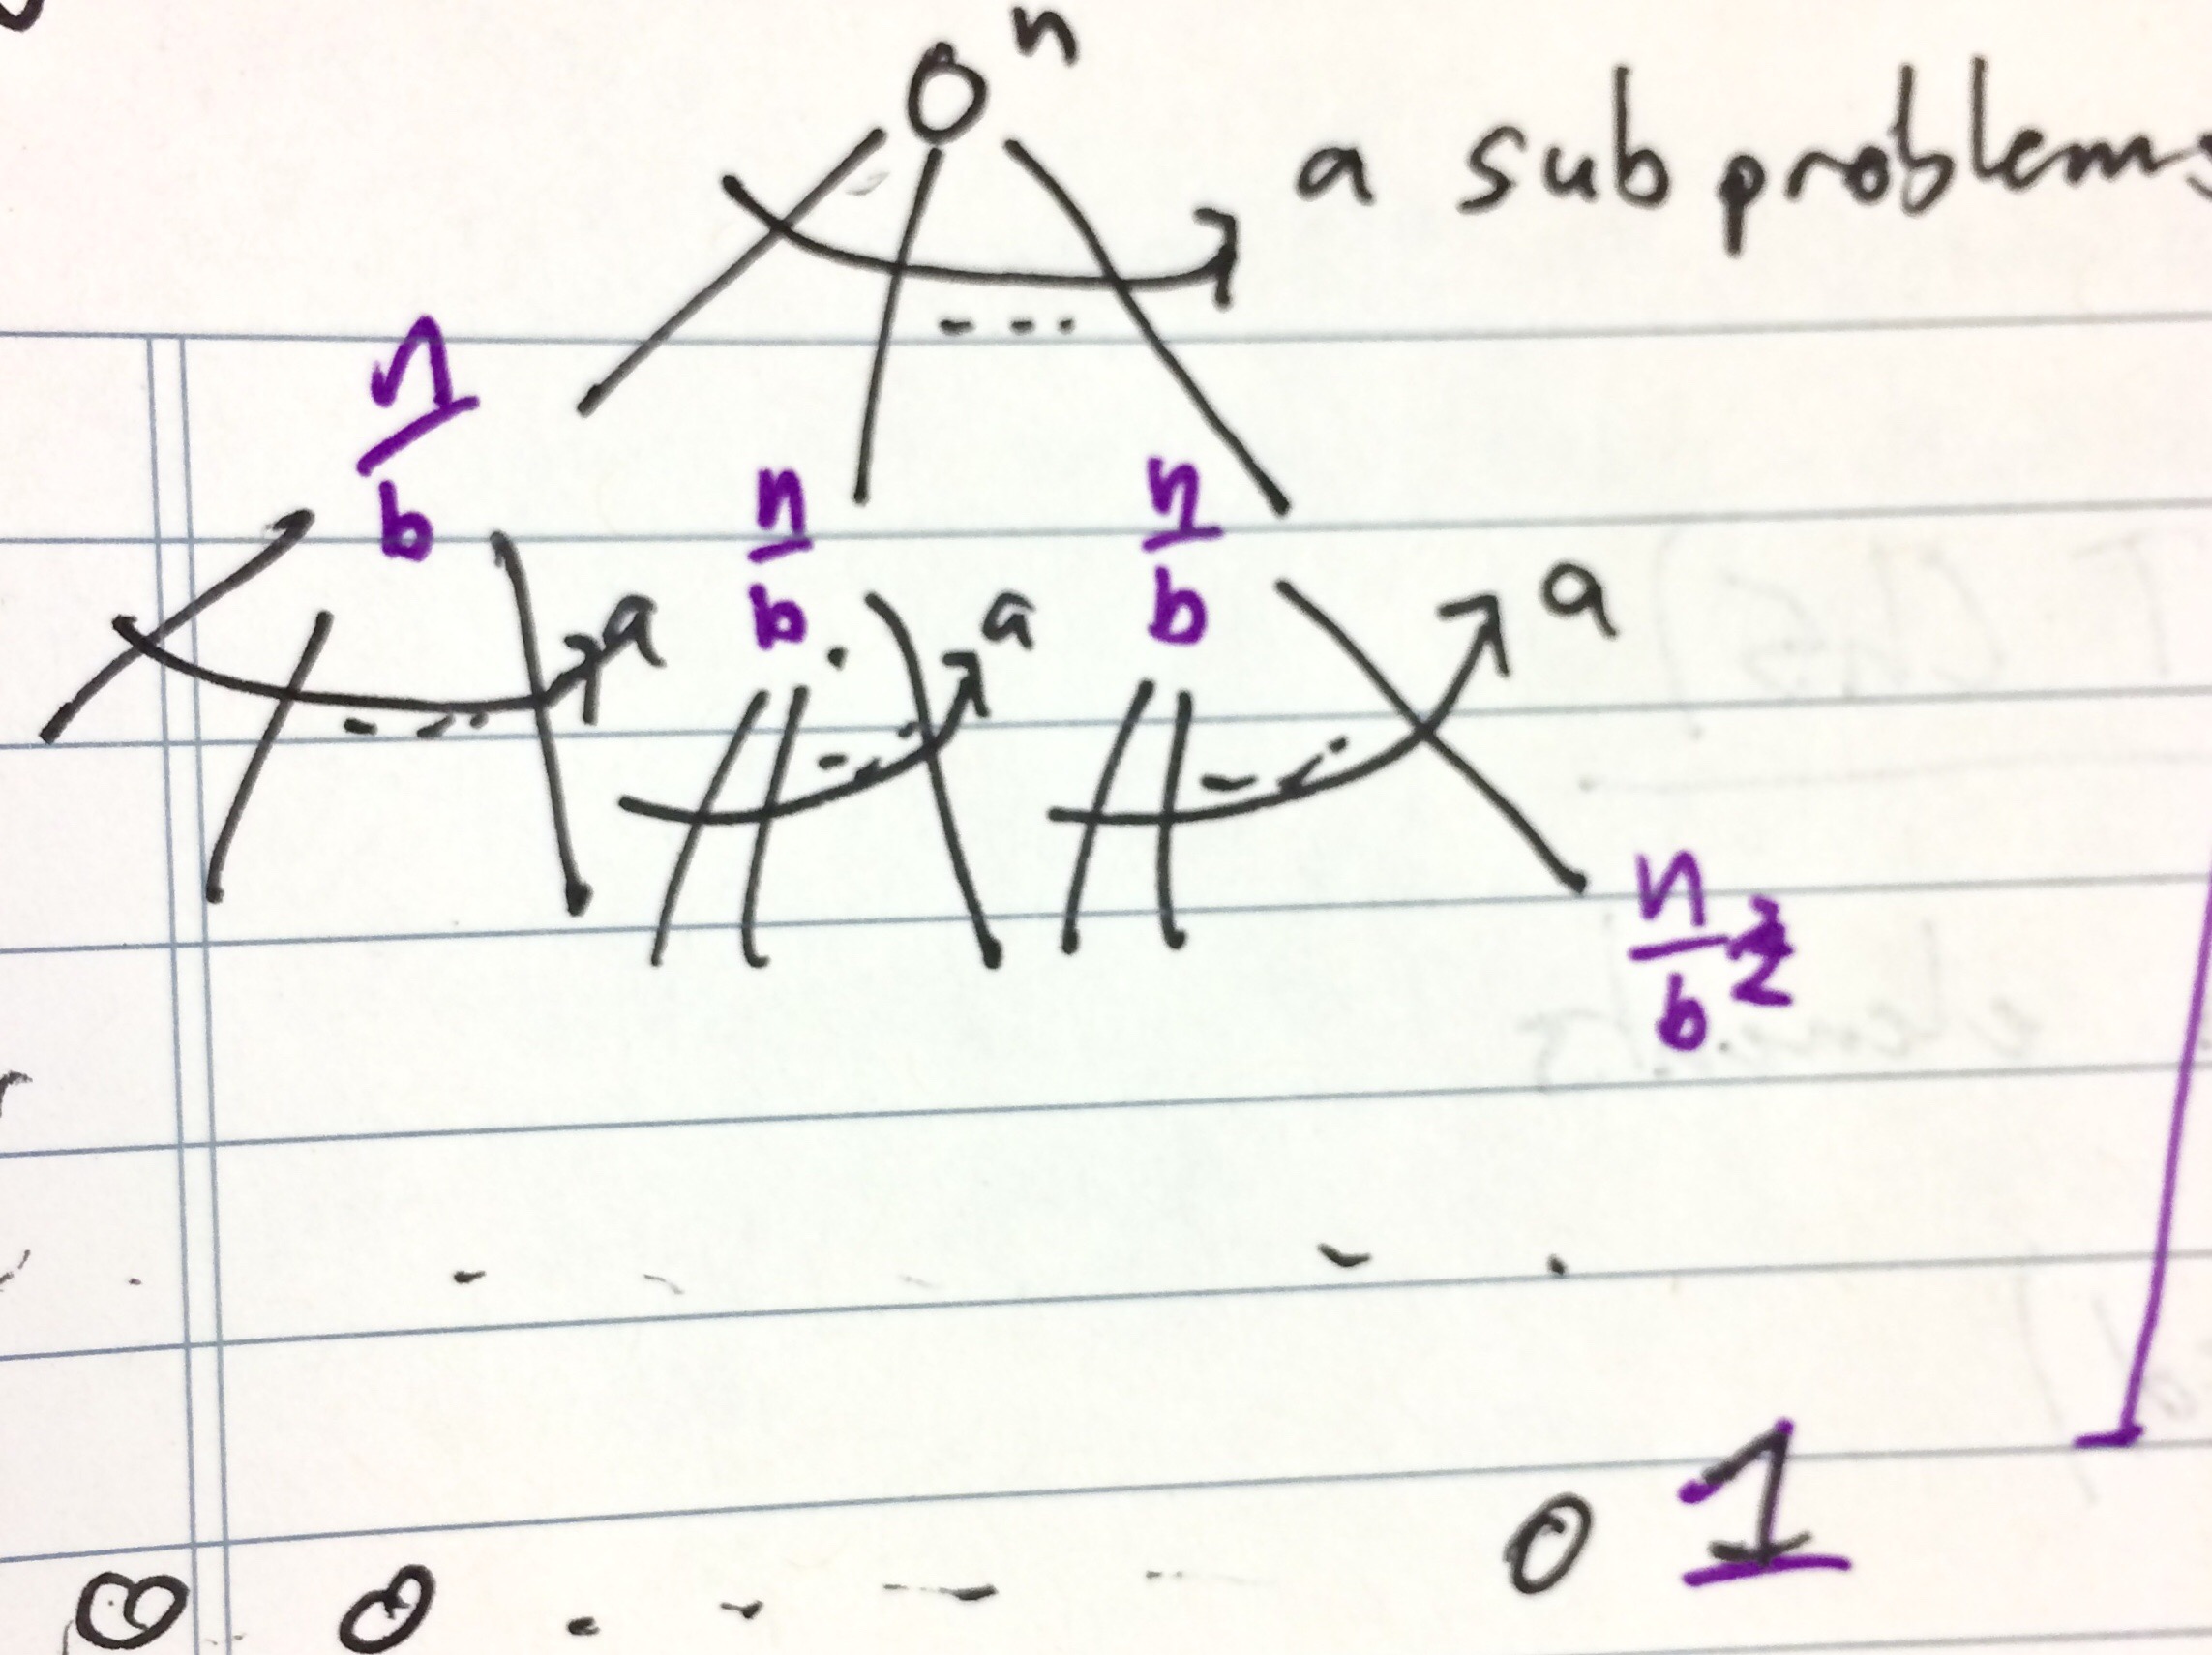 n
a subproblems
n/b n/b n/b
a a a
n/b²
1